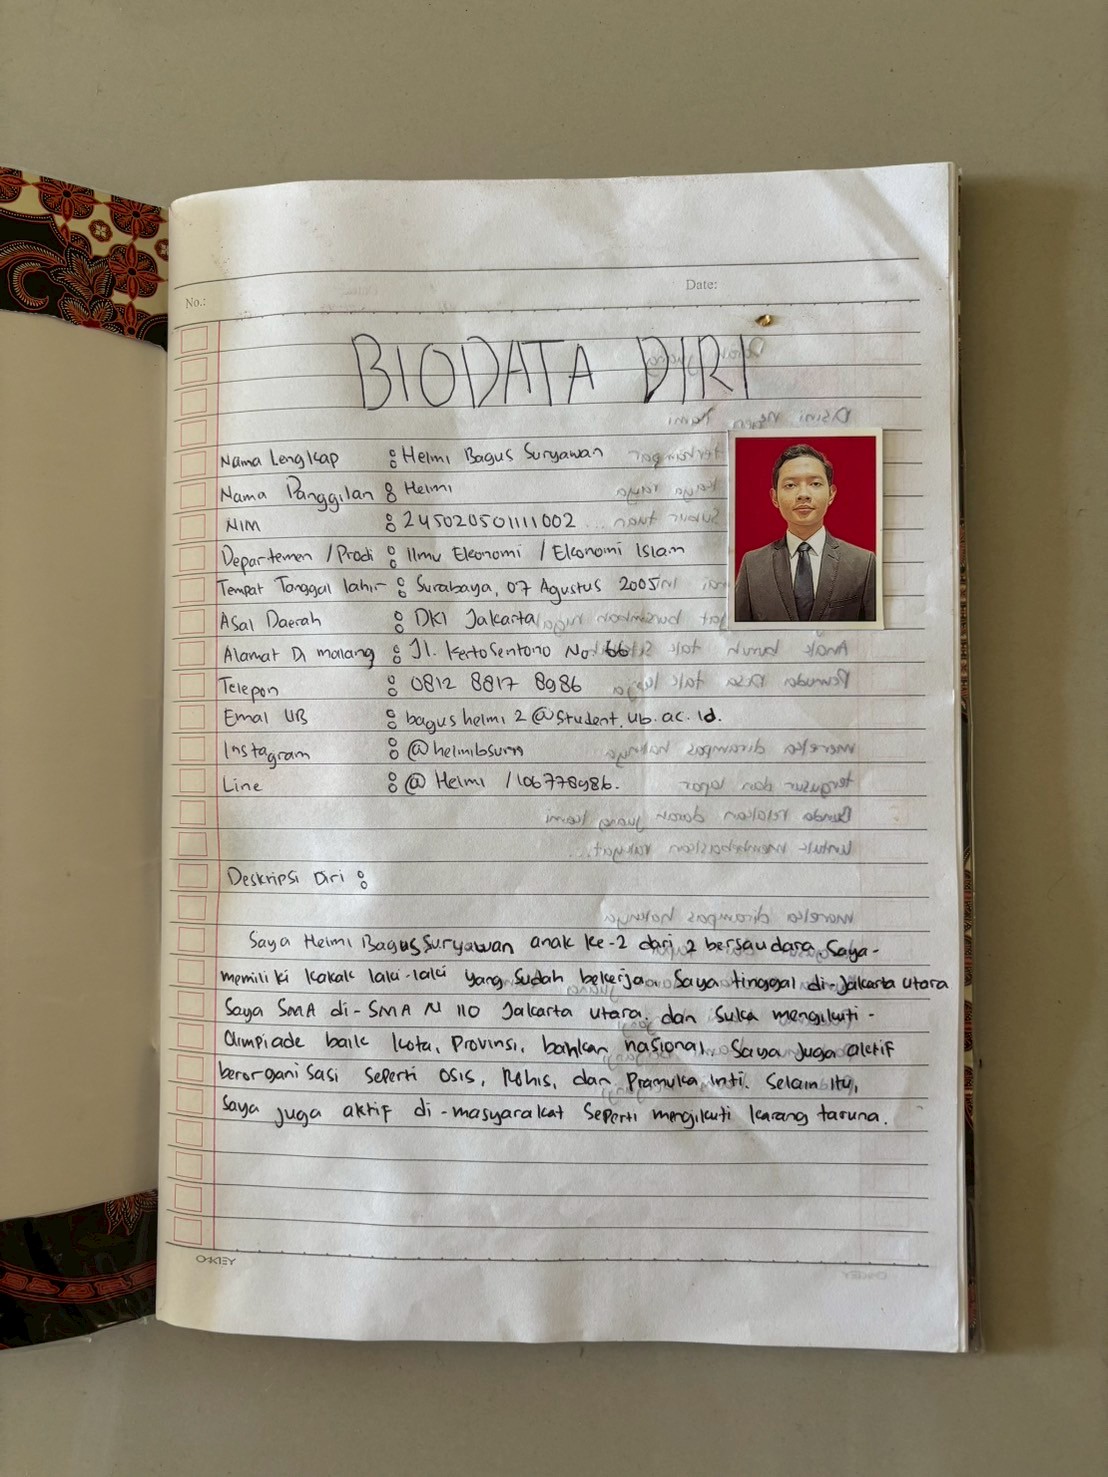 No.:
Date:
BIODATA DIRI
Nama Lengkap : Helmi Bagus Suryawan
Nama Panggilan : Helmi
NIM : 245020501111002
Departemen / Prodi : Ilmu Ekonomi / Ekonomi Islam
Tempat Tanggal lahir : Surabaya, 07 Agustus 2005
Asal Daerah : DKI Jakarta
Alamat Di malang : Jl. Kertosentono No 66
Telepon : 0812 8817 8986
Email UB : bagushelmi2@student.ub.ac.id.
Instagram : @helmibsurn
Line : @ Helmi / 106778986.
Deskripsi Diri :
Saya Helmi Bagus Suryawan anak ke-2 dari 2 bersaudara. Saya-
memiliki kakak laki-laki yang sudah bekerja. Saya tinggal di-Jakarta utara
Saya SMA di-SMA N 110 Jakarta utara. dan suka mengikuti-
Olimpiade baik kota, Provinsi, bahkan nasional. Saya juga aktif
berorganisasi seperti OSIS, Rohis, dan Pramuka inti. Selain itu,
Saya juga aktif di-masyarakat seperti mengikuti karang taruna.
OKEY